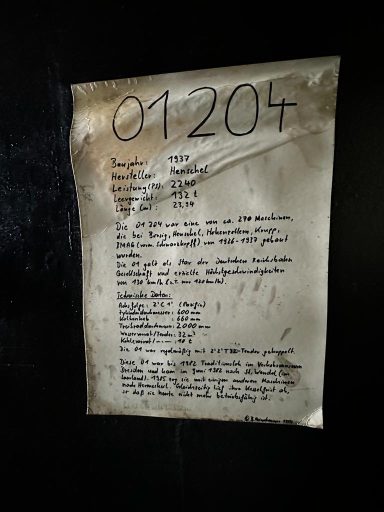 01 204
Baujahr: 1937
Hersteller: Henschel
Leistung (PS): 2240
Leergewicht: 132 t
Länge (m): 23,94
Die 01 204 war eine von ca. 240 Maschinen,
die bei Borsig, Henschel, Hohenzollern, Krupp,
(vorm. Schwartzkopff) von 1926-1937 gebaut
wurden.
Die 01 galt als Star der Deutschen Reichsbahn
Gesellschaft und erzielte Höchstgeschwindigkeiten
von 130 km/h (z.T. nur 120 km/h).
Technische Daten:
Achsfolge: 2'C 1' (Pacific)
Zylinderdurchmesser: 600 mm
Kolbenhub: 660 mm
Treibraddurchmesser: 2000 mm
Wasservorrat/Tender: 32 m³
Kohlevorrat/ 10 t
Die 01 war regelmäßig mit 2'2'T 32-Tender gekuppelt.
Diese 01 war bis 1982 Traditionslok im Verkehrsmuseum
Dresden und kam im Juni 1982 nach St. Wendel (im
Saarland). 1985 zog sie mit einigen anderen Maschinen
nach Hermeskeil. Gleichzeitig lief ihre Kesselfrist ab,
so daß sie heute nicht mehr betriebsfähig ist.